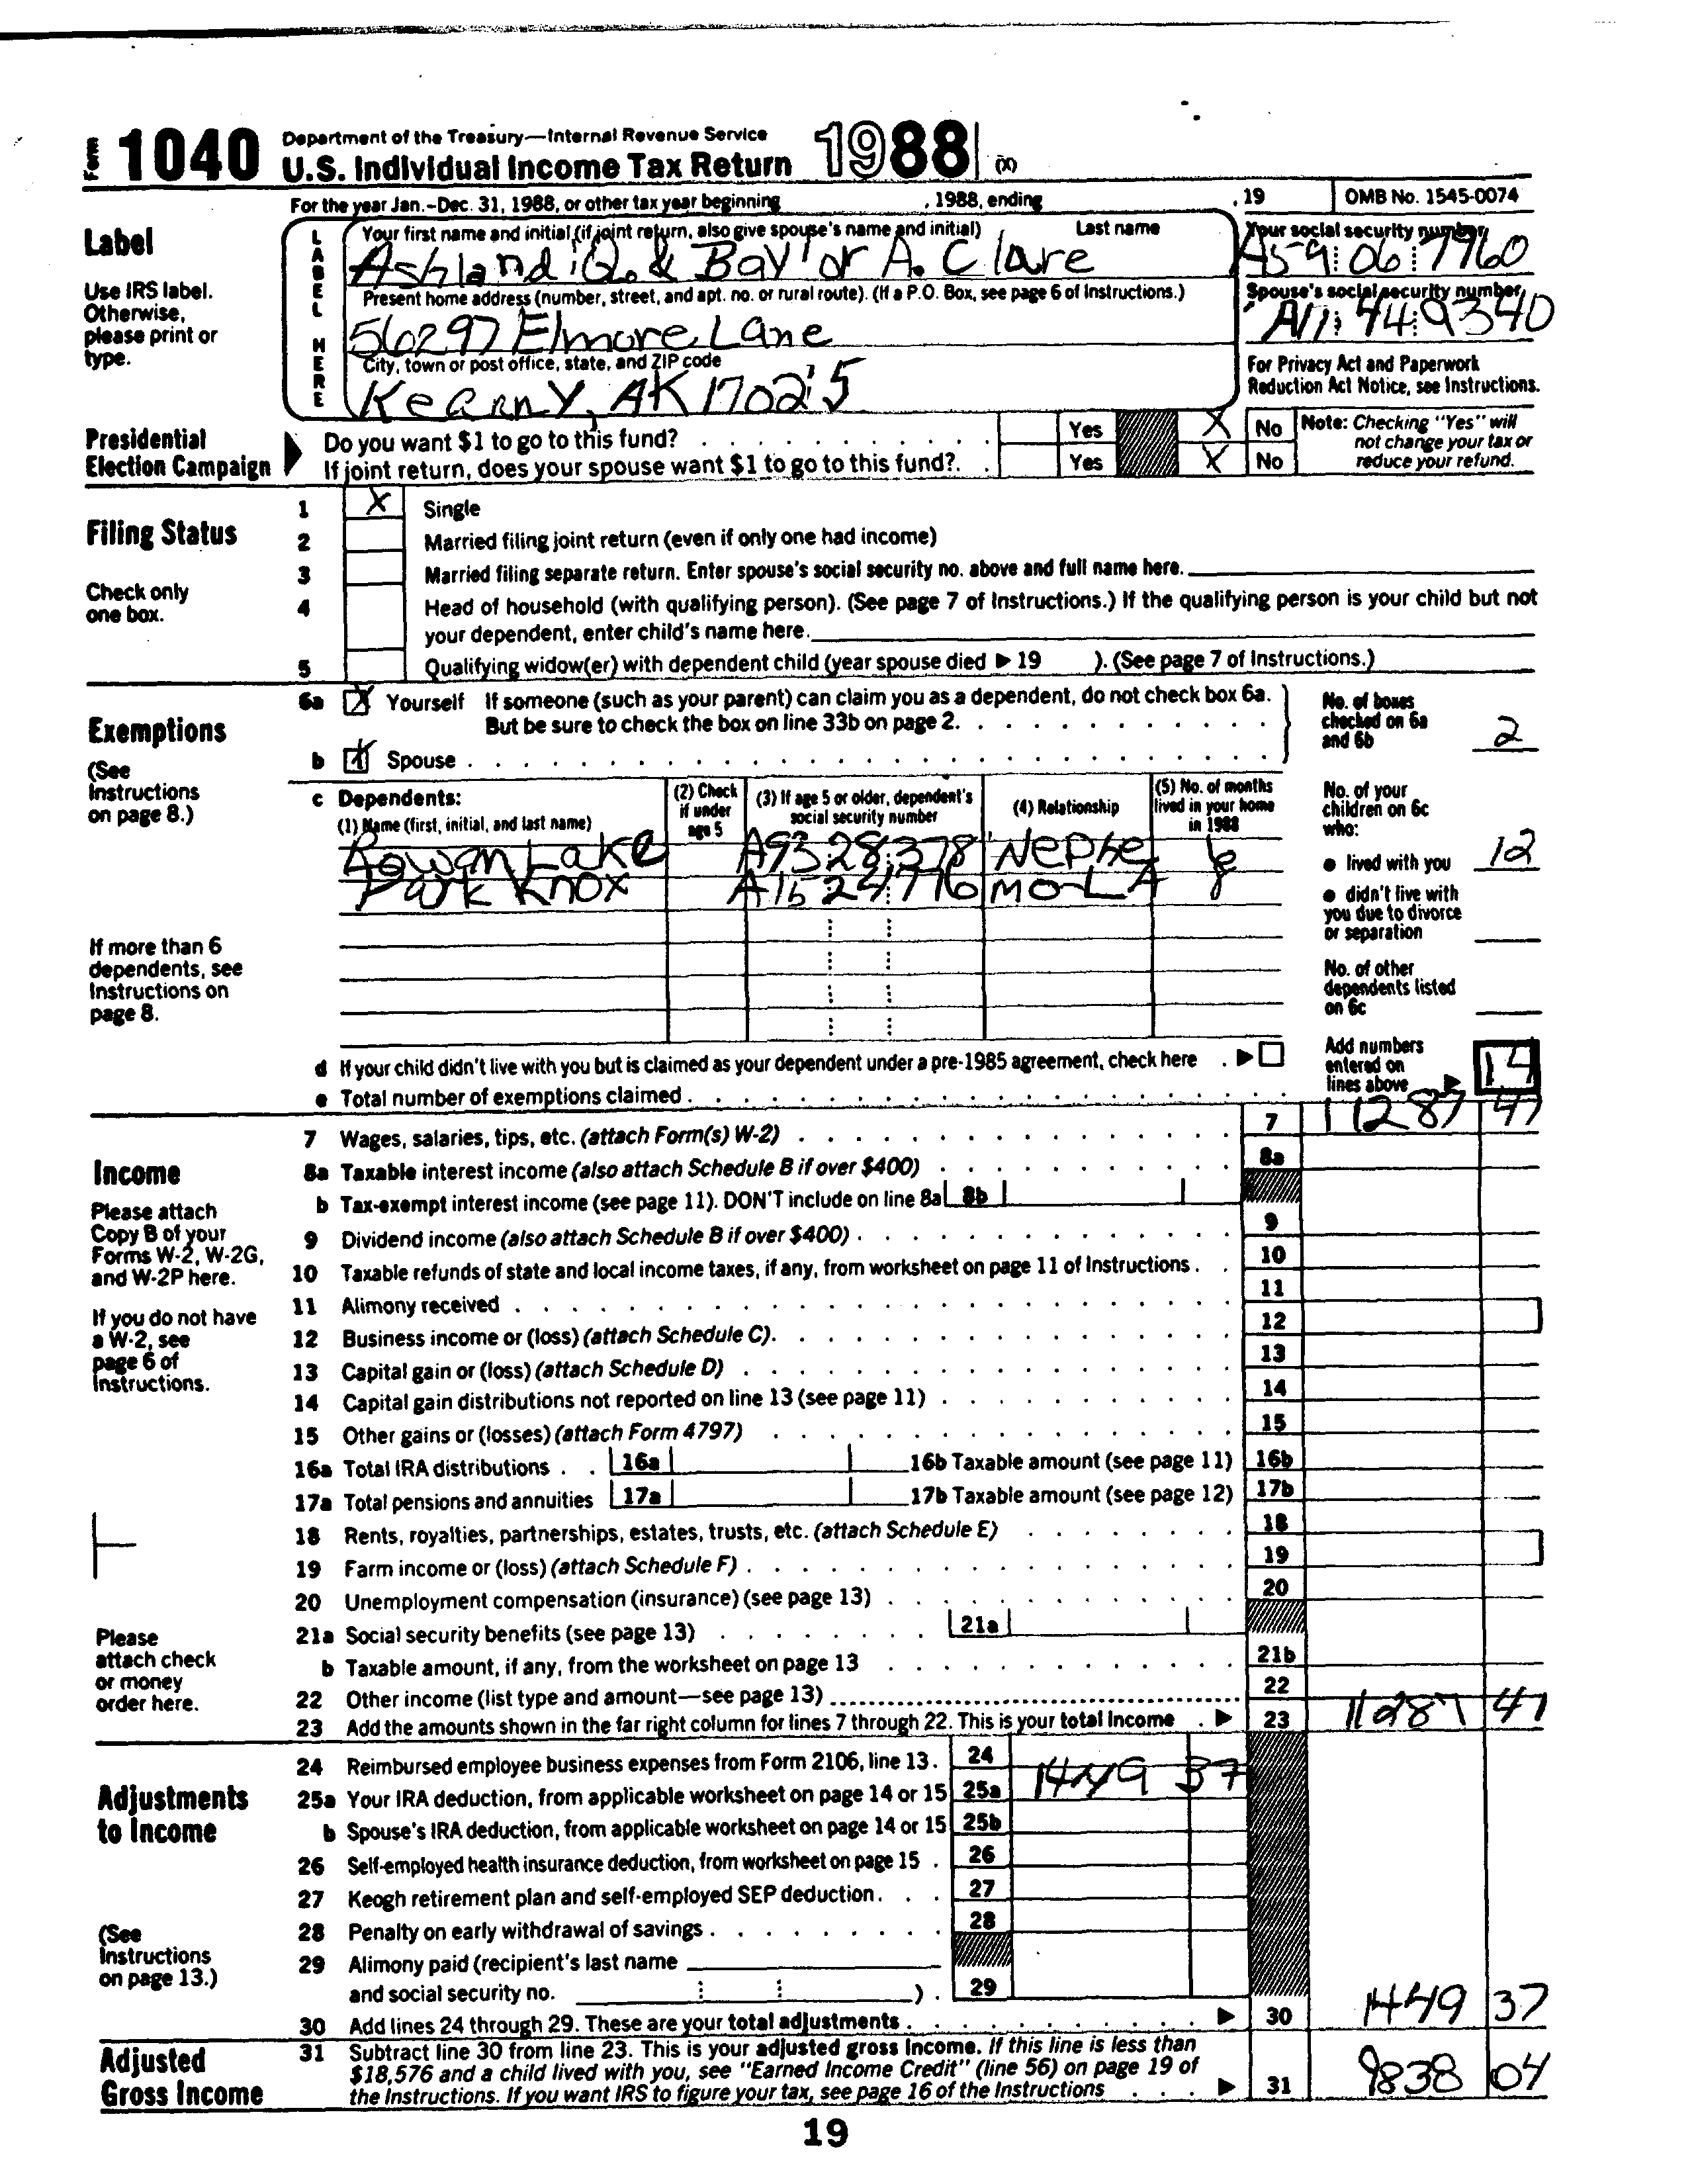 Form 1040 Department of the Treasury—Internal Revenue Service
U.S. Individual Income Tax Return 1988 (X)
For the year Jan.-Dec. 31, 1988, or other tax year beginning , 1988, ending , 19 OMB No. 1545-0074
Label
Use IRS label. Otherwise, please print or type.
LABEL HERE
Your first name and initial (if joint return, also give spouse's name and initial) Last name
Ashland Q. & Baylor A. Clare
Your social security number
A59 06 7960
Present home address (number, street, and apt. no. or rural route). (If a P.O. Box, see page 6 of Instructions.)
56297 Elmore Lane
Spouse's social security number
A11 44 9340
City, town or post office, state, and ZIP code
Kearny, AK 17025
For Privacy Act and Paperwork Reduction Act Notice, see Instructions.
Presidential Election Campaign
Do you want $1 to go to this fund? Yes X No
If joint return, does your spouse want $1 to go to this fund? Yes X No
Note: Checking "Yes" will not change your tax or reduce your refund.
Filing Status
Check only one box.
1 X Single
2 Married filing joint return (even if only one had income)
3 Married filing separate return. Enter spouse's social security no. above and full name here.
4 Head of household (with qualifying person). (See page 7 of Instructions.) If the qualifying person is your child but not
your dependent, enter child's name here.
5 Qualifying widow(er) with dependent child (year spouse died ▶ 19 ). (See page 7 of Instructions.)
Exemptions
(See Instructions on page 8.)
6a X Yourself If someone (such as your parent) can claim you as a dependent, do not check box 6a.
But be sure to check the box on line 33b on page 2.
b X Spouse
No. of boxes checked on 6a and 6b 2
c Dependents:
(1) Name (first, initial, and last name)
(2) Check if under age 5
(3) If age 5 or older, dependent's social security number
(4) Relationship
(5) No. of months lived in your home in 1988
Rowan Lake A93 28 378 Nephe
Park Knox A15 24 776 MO-LA 8
If more than 6 dependents, see Instructions on page 8.
No. of your children on 6c who:
● lived with you 12
● didn't live with you due to divorce or separation
No. of other dependents listed on 6c
d If your child didn't live with you but is claimed as your dependent under a pre-1985 agreement, check here ▶
e Total number of exemptions claimed
Add numbers entered on lines above ▶ 14
Income
Please attach Copy B of your Forms W-2, W-2G, and W-2P here.
If you do not have a W-2, see page 6 of Instructions.
Please attach check or money order here.
7 Wages, salaries, tips, etc. (attach Form(s) W-2) 7 11287 47
8a Taxable interest income (also attach Schedule B if over $400) 8a
b Tax-exempt interest income (see page 11). DON'T include on line 8a 8b
9 Dividend income (also attach Schedule B if over $400) 9
10 Taxable refunds of state and local income taxes, if any, from worksheet on page 11 of Instructions 10
11 Alimony received 11
12 Business income or (loss) (attach Schedule C) 12
13 Capital gain or (loss) (attach Schedule D) 13
14 Capital gain distributions not reported on line 13 (see page 11) 14
15 Other gains or (losses) (attach Form 4797) 15
16a Total IRA distributions 16a 16b Taxable amount (see page 11) 16b
17a Total pensions and annuities 17a 17b Taxable amount (see page 12) 17b
18 Rents, royalties, partnerships, estates, trusts, etc. (attach Schedule E) 18
19 Farm income or (loss) (attach Schedule F) 19
20 Unemployment compensation (insurance) (see page 13) 20
21a Social security benefits (see page 13) 21a
b Taxable amount, if any, from the worksheet on page 13 21b
22 Other income (list type and amount—see page 13) 22
23 Add the amounts shown in the far right column for lines 7 through 22. This is your total income ▶ 23 11287 47
Adjustments to Income
(See Instructions on page 13.)
24 Reimbursed employee business expenses from Form 2106, line 13 24
25a Your IRA deduction, from applicable worksheet on page 14 or 15 25a 1449 37
b Spouse's IRA deduction, from applicable worksheet on page 14 or 15 25b
26 Self-employed health insurance deduction, from worksheet on page 15 26
27 Keogh retirement plan and self-employed SEP deduction 27
28 Penalty on early withdrawal of savings 28
29 Alimony paid (recipient's last name
and social security no. ) 29
30 Add lines 24 through 29. These are your total adjustments ▶ 30 1449 37
Adjusted Gross Income
31 Subtract line 30 from line 23. This is your adjusted gross income. If this line is less than
$18,576 and a child lived with you, see "Earned Income Credit" (line 56) on page 19 of
the Instructions. If you want IRS to figure your tax, see page 16 of the Instructions ▶ 31 9838 04
19